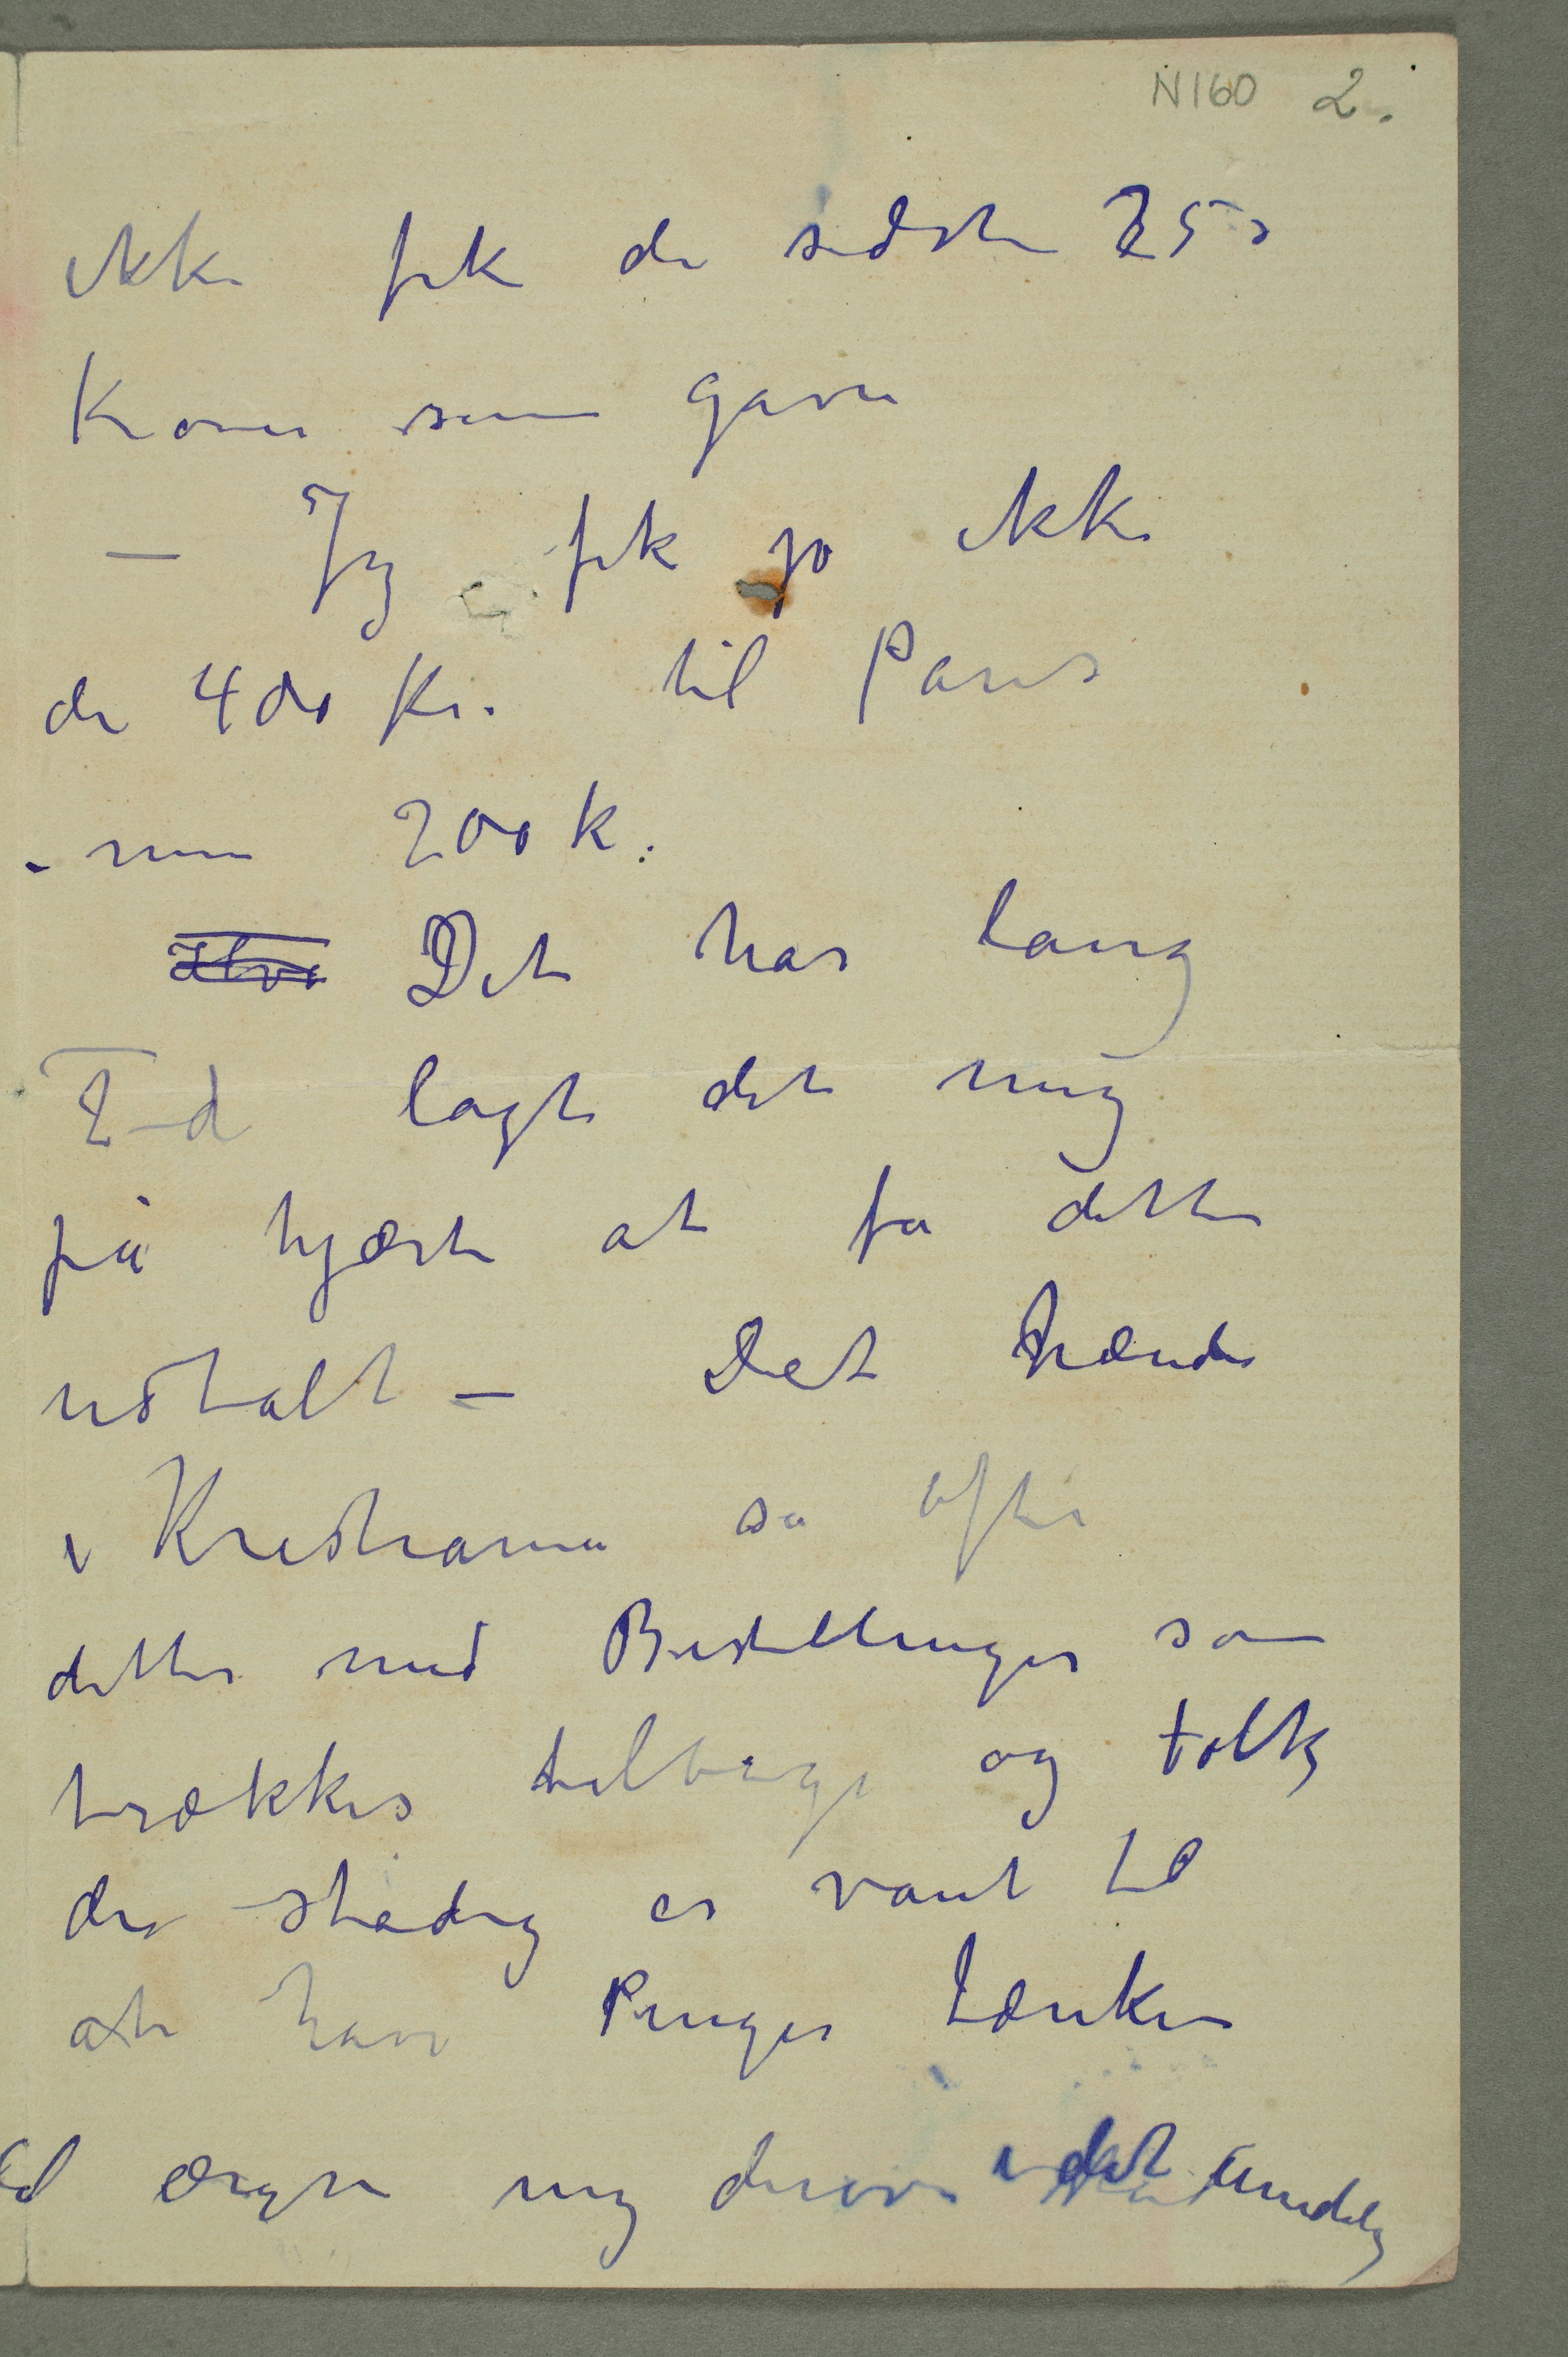 N160 2.
ikke fik de sidste 250
Kroner som gave
– Jeg fik jo ikke
de 400 Kr. til Paris
- men 200 k.
Hvo Det har lang
Tid lagt det mig
på hjærte at få dette
udtalt – Det hænder
i Kristiania så ofte
dette med Bestillinger som
trækkes tilbage og folk
der stadig er vant til
at have Penger tænker
ærgre mig derover i det Umidelig